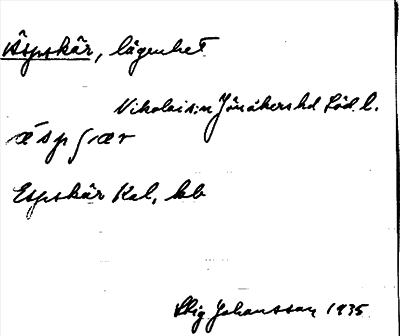 Äspskär, lägenhet
Nikolai sn Jönåkers hd Söd. l.
ǽspʃær
Espskär Kal, kb
Stig Johansson 1935